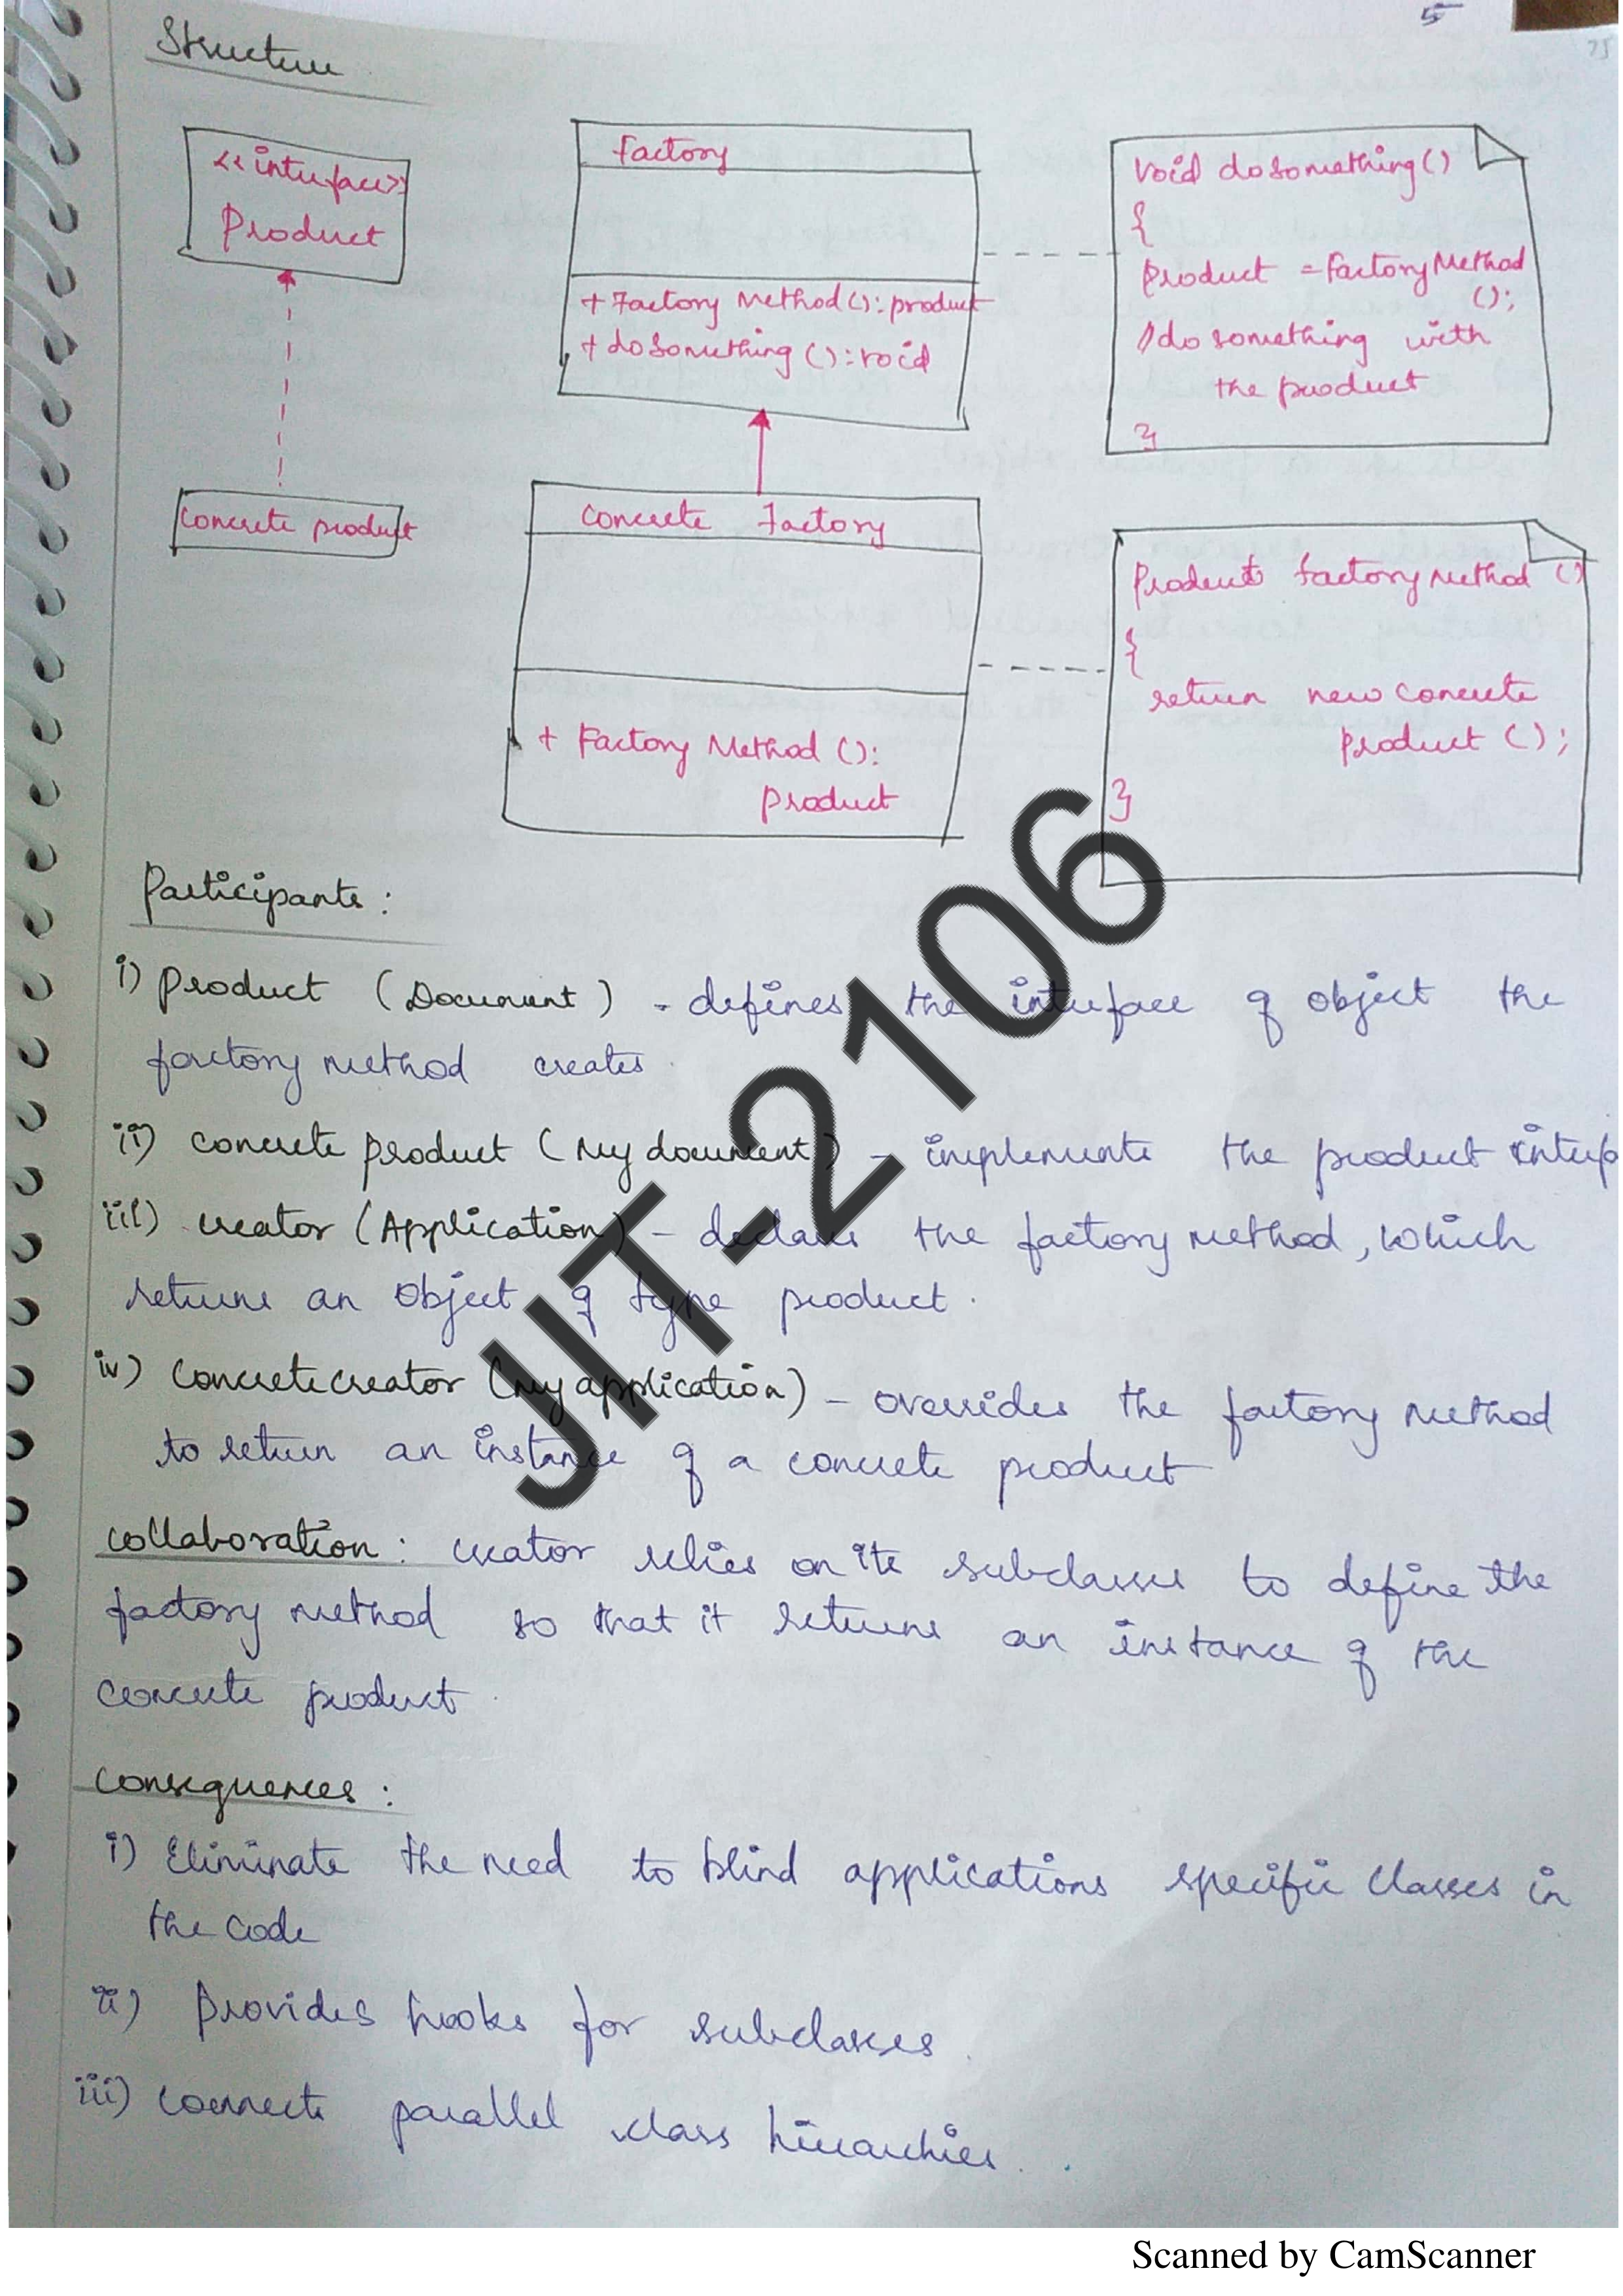 5
75
Structure
<<interface>>
Product
Factory
+ Factory Method(): product
+ dosomething(): void
void dosomething()
{
product = FactoryMethod
();
//do something with
the product
}
concrete product
Concrete Factory
+ Factory Method ():
product
Product factorymethod ()
{
return new concrete
product ();
}
Participants:
i) product (Document) - defines the interface of object the
factory method creates.
ii) concrete product (My document) - implements the product interf
iii) creator (Application) - declares the factory method, which
returns an object of type product.
iv) concretecreator (my application) - overrides the factory method
to return an instance of a concrete product
collaboration: creator relies on its subclasses to define the
factory method so that it returns an instance of the
concrete product.
consequences:
i) Eliminate the need to blind applications specific classes in
the code
ii) Provides hooks for subclasses.
iii) connects parallel class hierarchies.
JIT-2106
Scanned by CamScanner